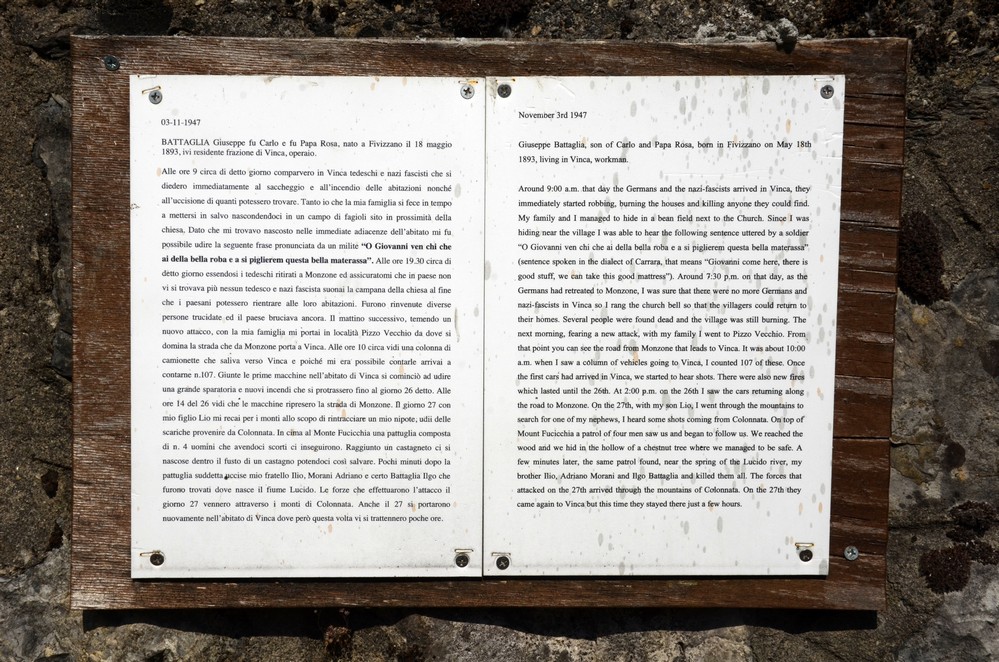 03-11-1947
BATTAGLIA Giuseppe fu Carlo e fu Papa Rosa, nato a Fivizzano il 18 maggio
1893, ivi residente frazione di Vinca, operaio.
Alle ore 9 circa di detto giorno comparvero in Vinca tedeschi e nazi fascisti che si
diedero immediatamente al saccheggio e all'incendio delle abitazioni nonché
all'uccisione di quanti potessero trovare. Tanto io che la mia famiglia si fece in tempo
a mettersi in salvo nascondendoci in un campo di fagioli sito in prossimità della
chiesa, Dato che mi trovavo nascosto nelle immediate adiacenze dell'abitato mi fu
possibile udire la seguente frase pronunciata da un milite "O Giovanni ven chì che
ai della bella roba e a si piglierem questa bella materassa". Alle ore 19.30 circa di
detto giorno essendosi i tedeschi ritirati a Monzone ed assicuratomi che in paese non
vi si trovava più nessun tedesco e nazi fascista suonai la campana della chiesa al fine
che i paesani potessero rientrare alle loro abitazioni. Furono rinvenute diverse
persone trucidate ed il paese bruciava ancora. Il mattino successivo, temendo un
nuovo attacco, con la mia famiglia mi portai in località Pizzo Vecchio da dove si
domina la strada che da Monzone porta a Vinca. Alle ore 10 circa vidi una colonna di
camionette che saliva verso Vinca e poiché mi era possibile contarle arrivai a
contarne n.107. Giunte le prime macchine nell'abitato di Vinca si cominciò ad udire
una grande sparatoria e nuovi incendi che si protrassero fino al giorno 26 detto. Alle
ore 14 del 26 vidi che le macchine ripresero la strada di Monzone. Il giorno 27 con
mio figlio Lio mi recai per i monti allo scopo di rintracciare un mio nipote, udii delle
scariche provenire da Colonnata. In cima al Monte Fucicchia una pattuglia composta
di n. 4 uomini che avendoci scorti ci inseguirono. Raggiunto un castagneto ci si
nascose dentro il fusto di un castagno potendoci così salvare. Pochi minuti dopo la
pattuglia suddetta uccise mio fratello Ilio, Morani Adriano e certo Battaglia Ilgo che
furono trovati dove nasce il fiume Lucido. Le forze che effettuarono l'attacco il
giorno 27 vennero attraverso i monti di Colonnata. Anche il 27 si portarono
nuovamente nell'abitato di Vinca dove però questa volta vi si trattennero poche ore.
November 3rd 1947
Giuseppe Battaglia, son of Carlo and Papa Rosa, born in Fivizzano on May 18th
1893, living in Vinca, workman.
Around 9:00 a.m. that day the Germans and the nazi-fascists arrived in Vinca, they
immediately started robbing, burning the houses and killing anyone they could find.
My family and I managed to hide in a bean field next to the Church. Since I was
hiding near the village I was able to hear the following sentence uttered by a soldier
"O Giovanni ven chi che ai della bella roba e a si piglierem questa bella materassa"
(sentence spoken in the dialect of Carrara, that means "Giovanni come here, there is
good stuff, we can take this good mattress"). Around 7:30 p.m. on that day, as the
Germans had retreated to Monzone, I was sure that there were no more Germans and
nazi-fascists in Vinca so I rang the church bell so that the villagers could return to
their homes. Several people were found dead and the village was still burning. The
next morning, fearing a new attack, with my family I went to Pizzo Vecchio. From
that point you can see the road from Monzone that leads to Vinca. It was about 10:00
a.m. when I saw a column of vehicles going to Vinca, I counted 107 of these. Once
the first cars had arrived in Vinca, we started to hear shots. There were also new fires
which lasted until the 26th. At 2:00 p.m. on the 26th I saw the cars returning along
the road to Monzone. On the 27th, with my son Lio, I went through the mountains to
search for one of my nephews, I heard some shots coming from Colonnata. On top of
Mount Fucicchia a patrol of four men saw us and began to follow us. We reached the
wood and we hid in the hollow of a chestnut tree where we managed to be safe. A
few minutes later, the same patrol found, near the spring of the Lucido river, my
brother Ilio, Adriano Morani and Ilgo Battaglia and killed them all. The forces that
attacked on the 27th arrived through the mountains of Colonnata. On the 27th they
came again to Vinca but this time they stayed there just a few hours.